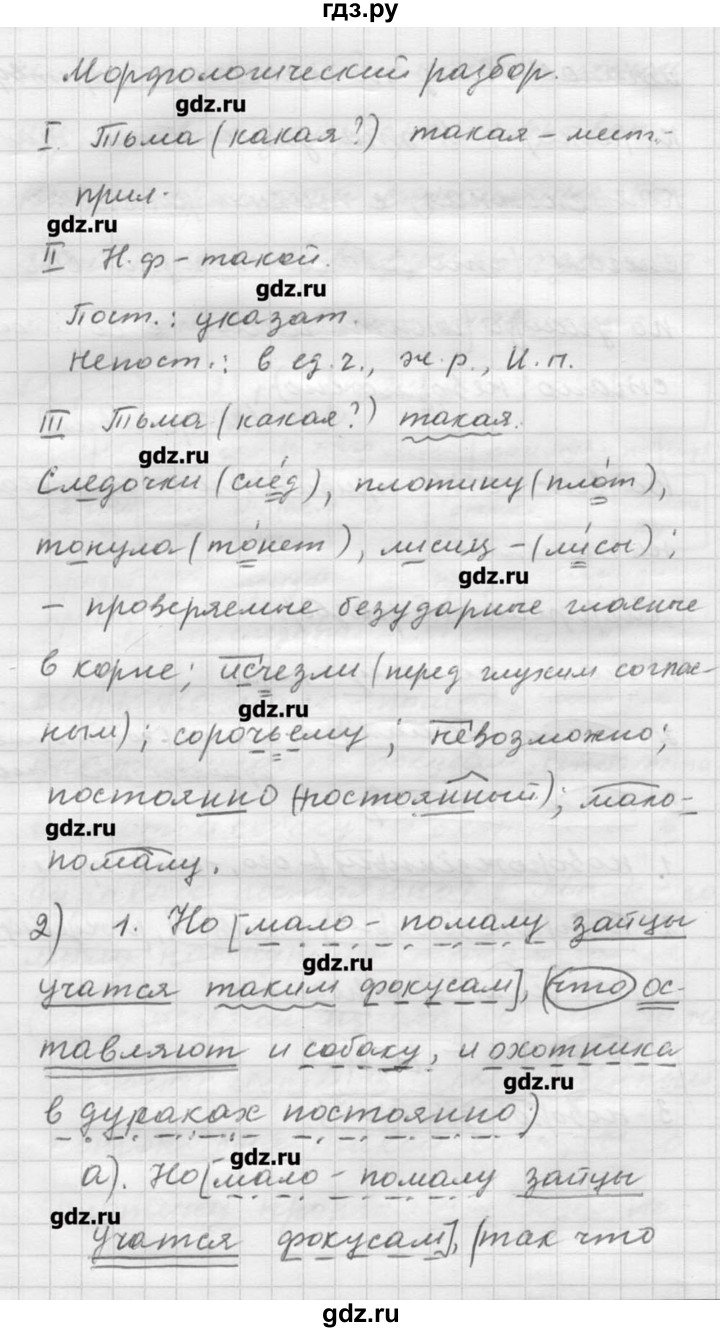 гдз.ру
Морфологический разбор.
gdz.ru
I. Тьма (какая?) такая – мест.-
прил.
gdz.ru
II Н.ф – такой.
gdz.ru
Пост.: указат.
Непост.: в ед.ч., ж.р., И.п.
III Тьма (какая?) такая.
gdz.ru
Следочки (сле́д), плотину (пло́т),
тонула (то́нет), лисиц – (ли́сы);
gdz.ru
– проверяемые безударные гласные
в корне; исчезли (перед глухим соглас-
gdz.ru
ным); сорочьему; невозможно;
постоянно (постоянный); мало-
gdz.ru
помалу.
2) 1. Но [мало – помалу зайцы
gdz.ru
учатся таким фокусам], (что ос-
тавляют и собаку, и охотника
gdz.ru
в дураках постоянно)
gdz.ru
а). Но [мало – помалу зайцы
gdz.ru
учатся фокусам], (так что
gdz.ru